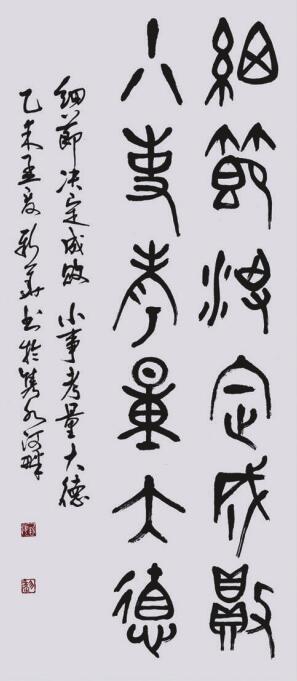 細節決定成敗
小事考量大德
細節决定成敗 小事考量大德
乙未孟夏 新華书於雋水河畔